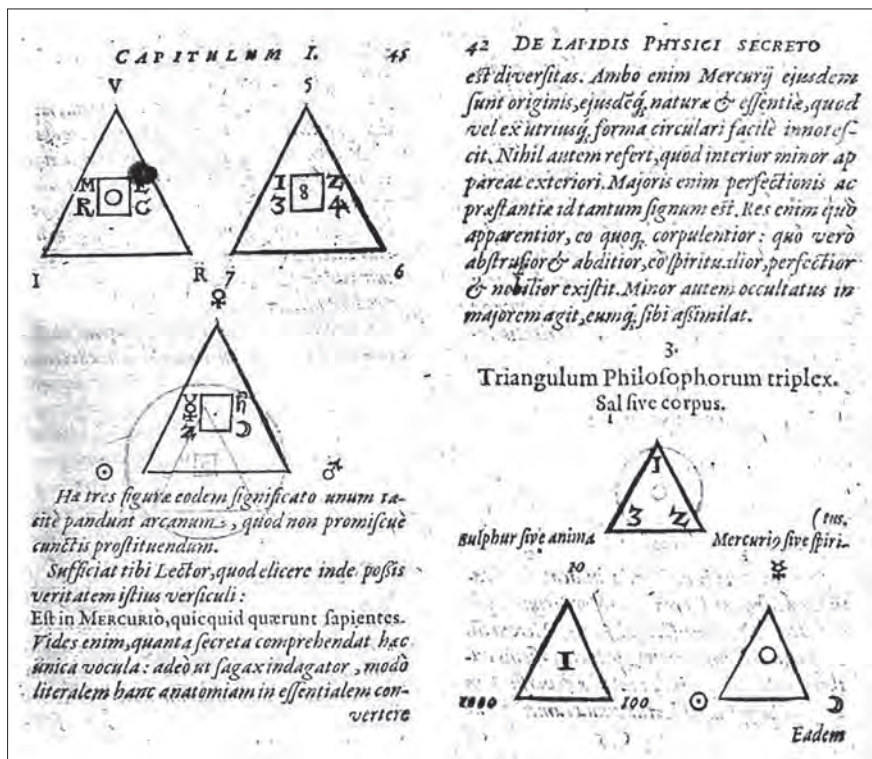 CAPITULUM I. 45
V 5
M E I Z
R C 3 8 4
I R 7 6
☿
☿ ♄
♃ ☽
☉ ♂
Hæ tres figuræ eodem ſignificato unum ta-
citè pandunt arcanum, quod non promiſcuè
cunctis proſtituendum.
Sufficiat tibi Lector, quod elicere inde poſsis
veritatem iſtius verſiculi:
Eſt in MERCURIO, quicquid quærunt ſapientes.
Vides enim, quanta ſecreta comprehendat hæc
unica vocula: adeò ut ſagax indagator, modò
literalem hanc anatomiam in eſſentialem con-
vertere
42 DE LAPIDIS PHYSICI SECRETO
eſt diverſitas. Ambo enim Mercurij ejuſdem
ſunt originis, ejuſdéq; naturæ & eſſentiæ, quod
vel ex utriuſq; forma circulari facilè innoteſ-
cit. Nihil autem refert, quod interior minor ap
pareat exteriori. Majoris enim perfectionis ac
præſtantiæ id tantum ſignum eſt. Res enim quò
apparentior, eo quoq; corpulentior: quò verò
abſtruſior & abditior, eò ſpiritualior, perfectior
& nobilior exiſtit. Minor autem occultatus in
majorem agit, eumq; ſibi aſsimilat.
3.
Triangulum Philoſophorum triplex.
Sal ſive corpus.
I
3 Z
(tus.
Sulphur ſive anima Mercurius ſive ſpiri-
10 ☿
I
1000 100 ☉ ☽
Eadem